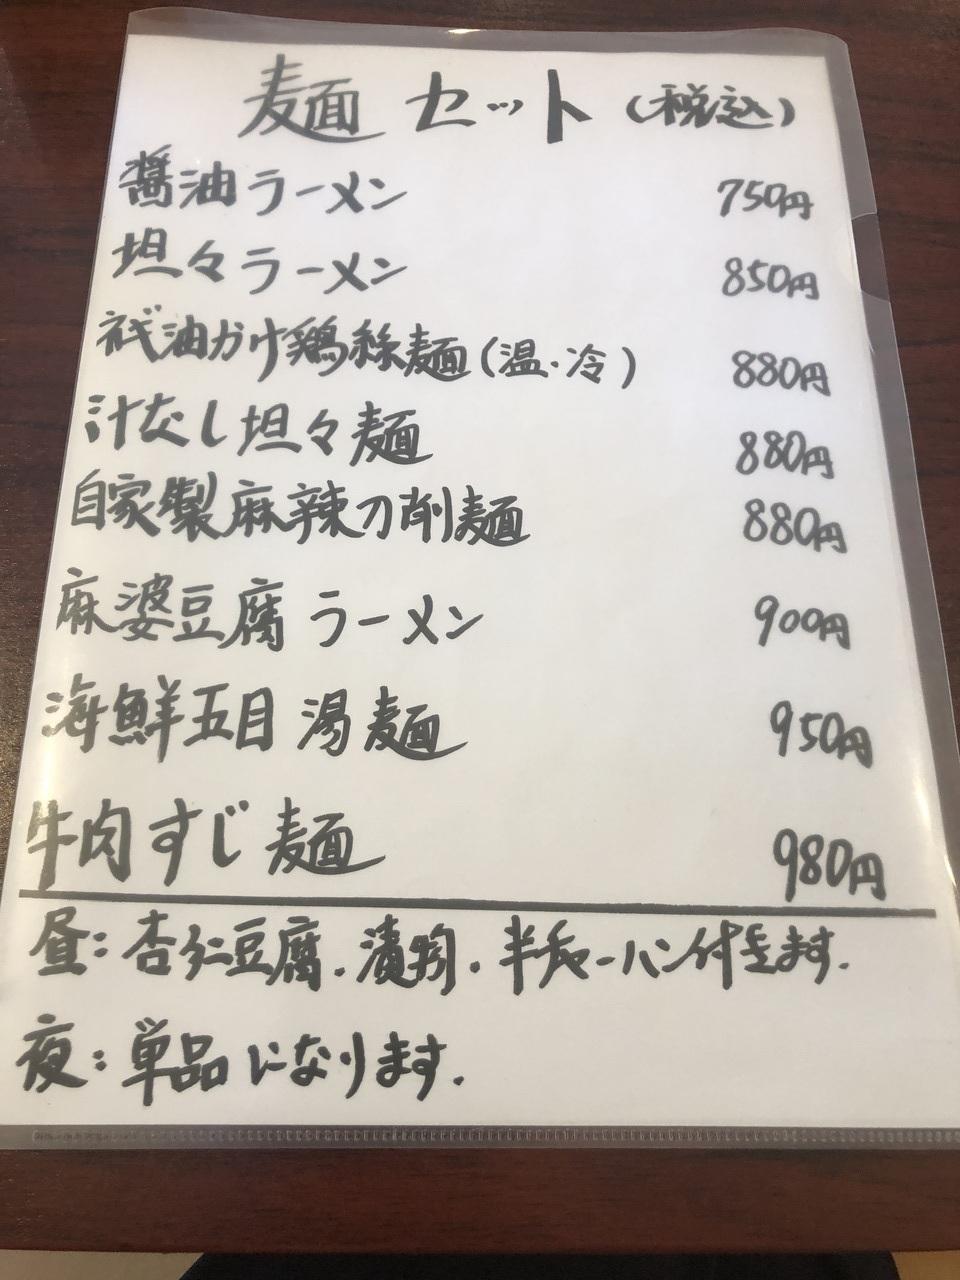 麺セット(税込)
醤油ラーメン 750円
坦々ラーメン 850円
油かけ鶏絲麺(温・冷) 880円
汁なし坦々麺 880円
自家製麻辣刀削麺 880円
麻婆豆腐ラーメン 900円
海鮮五目湯麺 950円
牛肉すじ麺 980円
昼:杏仁豆腐.漬物.半チャーハン付きます.
夜:単品になります.